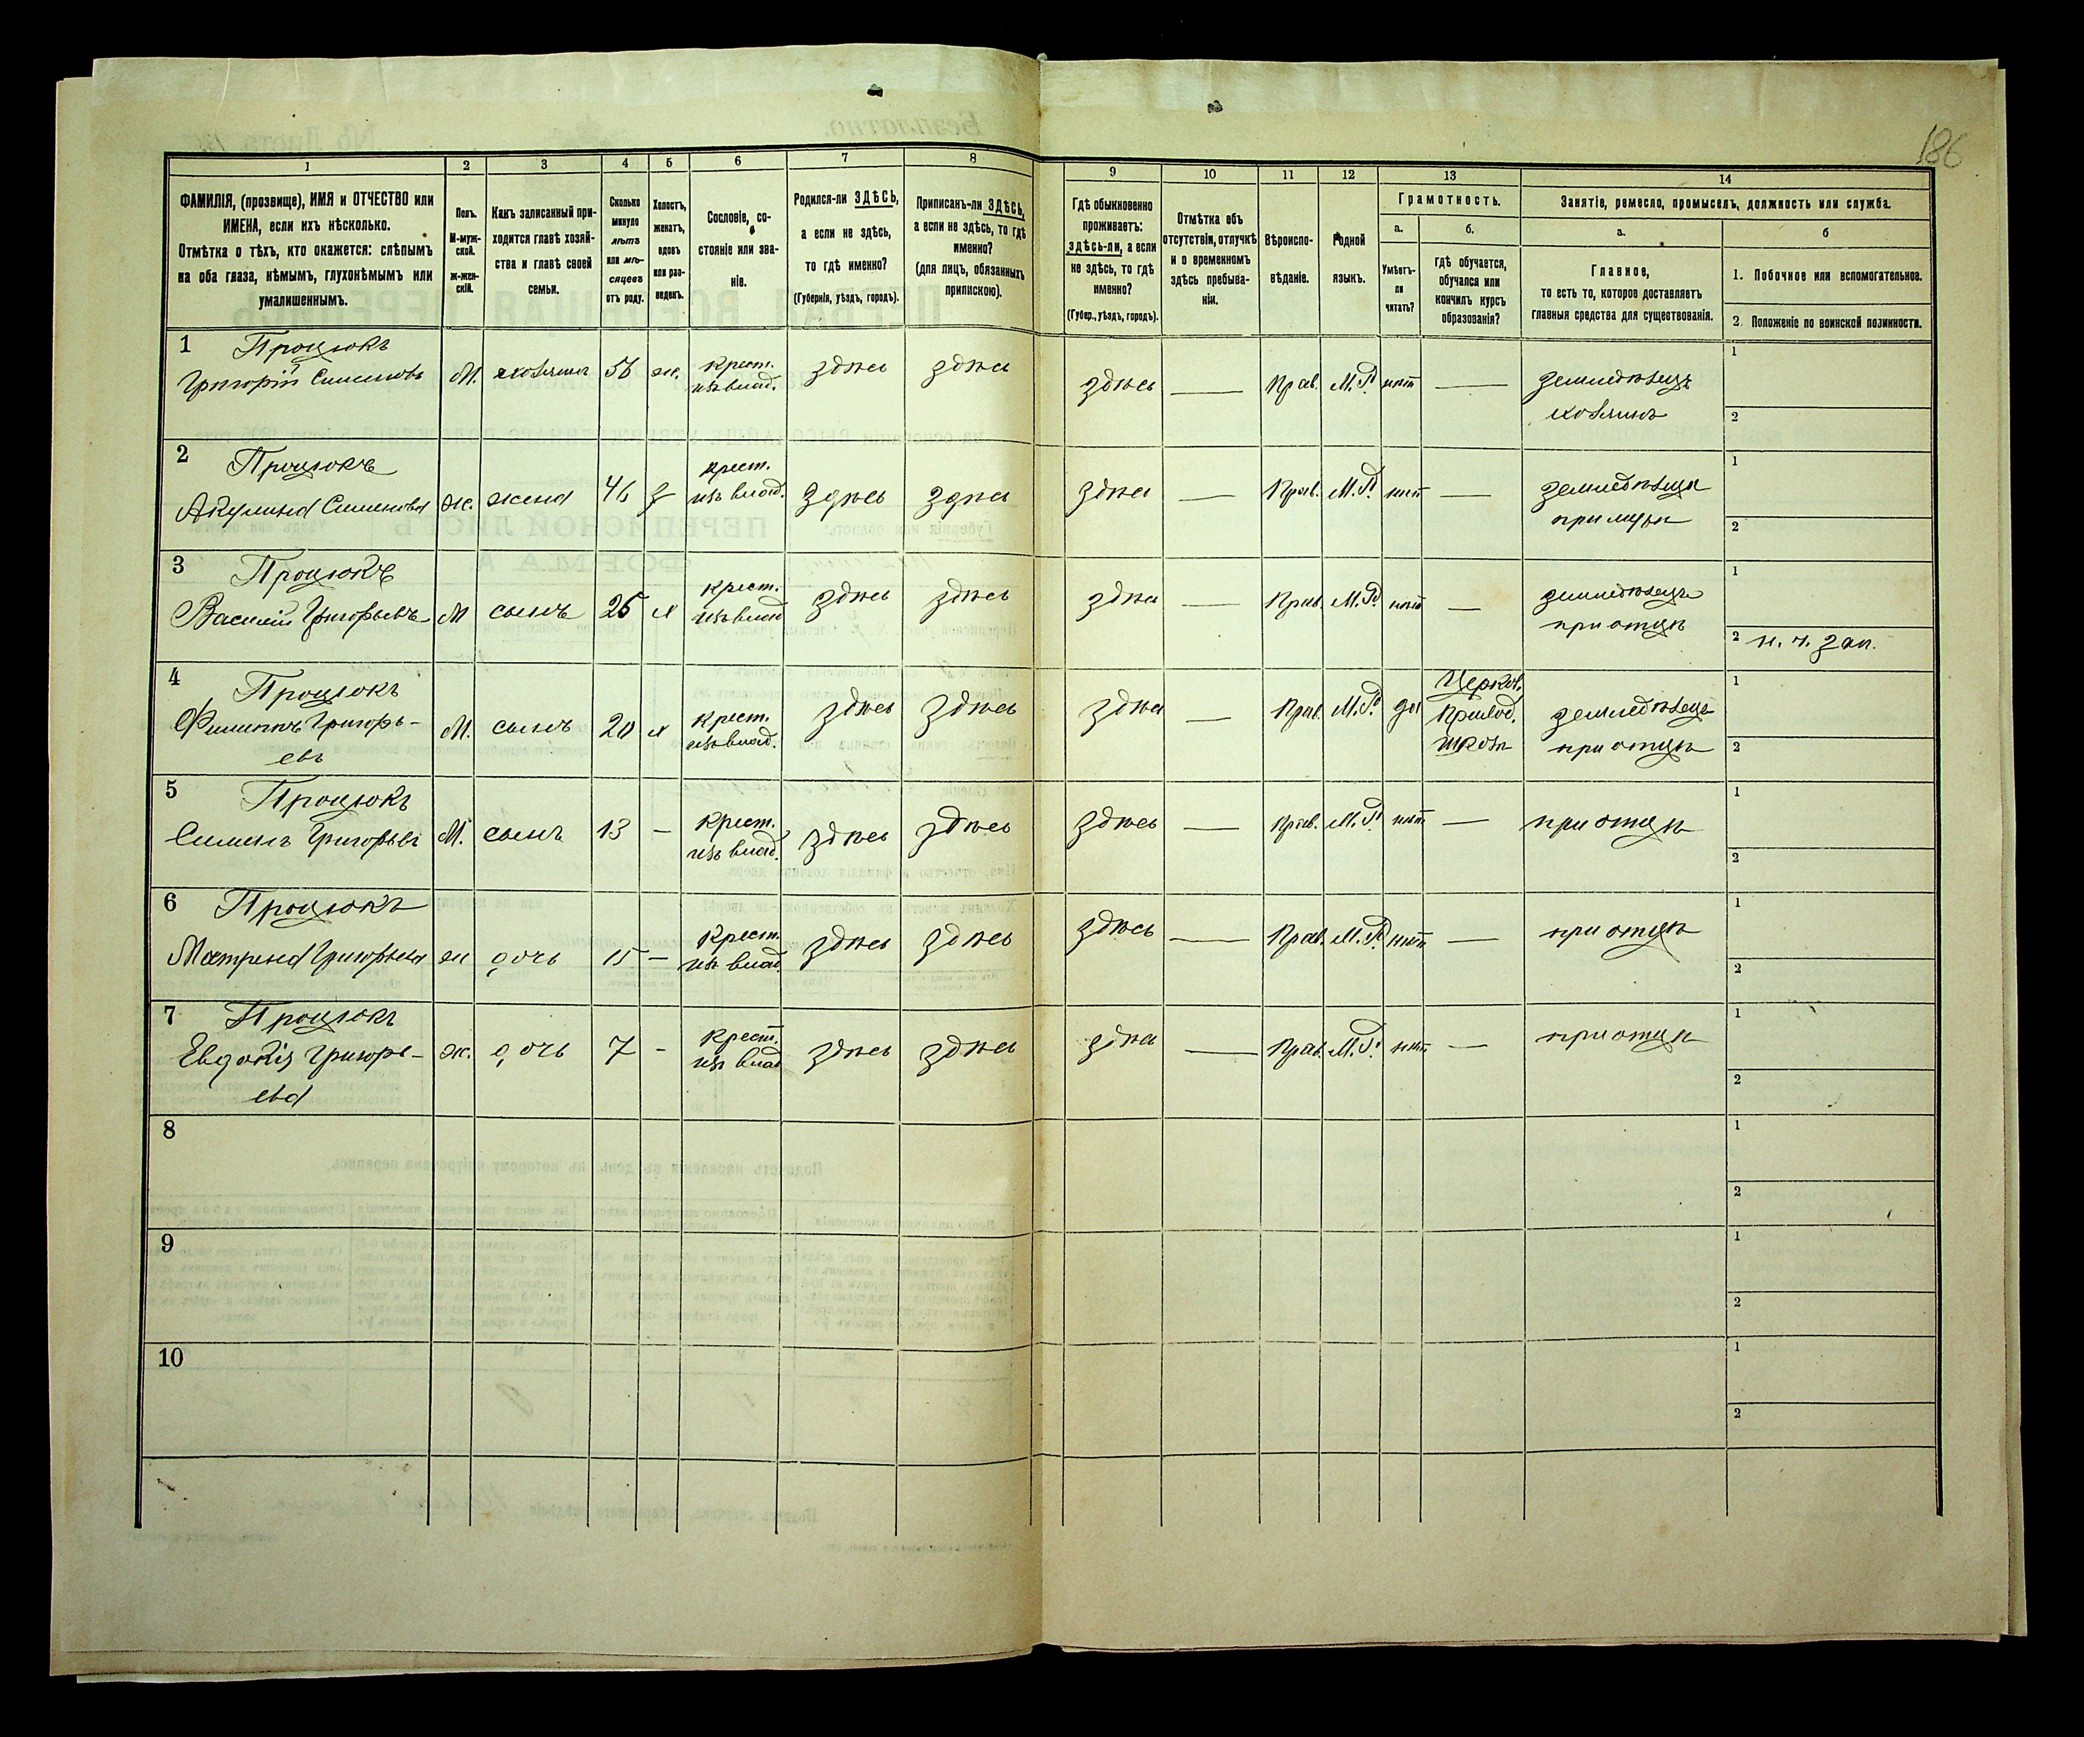 186
1 2 3 4 5 6 7 8 9 10 11 12 13 14
ФАМИЛІЯ, (прозвище), ИМЯ и ОТЧЕСТВО или
ИМЕНА, если ихъ нѣсколько.
Отмѣтка о тѣхъ, кто окажется: слѣпымъ
на оба глаза, нѣмымъ, глухонѣмымъ или
умалишеннымъ.
Полъ.
М-муж-
ской.
ж-жен-
скій.
Какъ записанный при-
ходится главѣ хозяй-
ства и главѣ своей
семьи.
Сколько
минуло
лѣтъ
или мѣ-
сяцевъ
отъ роду.
Холостъ,
женатъ,
вдовъ
или раз-
веденъ.
Сословіе, со-
стояніе или зва-
ніе.
Родился-ли ЗДѢСЬ,
а если не здѣсь,
то гдѣ именно?
(Губернія, уѣздъ, городъ).
Приписанъ-ли ЗДѢСЬ,
а если не здѣсь, то гдѣ
именно?
(для лицъ, обязанныхъ
припискою).
Гдѣ обыкновенно
проживаетъ:
здѣсь-ли, а если
не здѣсь, то гдѣ
именно?
(Губер., уѣздъ, городъ).
Отмѣтка объ
отсутствіи, отлучкѣ
и о временномъ
здѣсь пребыва-
ніи.
Вѣроиспо-
вѣданіе.
Родной
языкъ.
Грамотность.
а.
Умѣетъ-
ли
читать?
б.
гдѣ обучается,
обучался или
кончилъ курсъ
образованія?
Занятіе, ремесло, промыселъ, должность или служба.
а.
Главное,
то есть то, которое доставляетъ
главныя средства для существованія.
б
1. Побочное или вспомогательное.
2. Положеніе по воинской повинности.
1 Процюкъ
Григорій Сименовъ М. хозяинъ 56 ж. крест. изъ влад. здѣсь здѣсь здѣсь — Прав. М.Р. нѣт — земледѣлецъ
хозяинъ
1
2
2 Процюкъ
Акулина Сименова ж. жена 46 з крест. изъ влад. здѣсь здѣсь здѣсь — Прав. М.Р. нѣт — земледѣлецъ
при мужѣ
1
2
3 Процюкъ
Василій Григорьевъ М сынъ 25 х крест. изъ влад здѣсь здѣсь здѣсь — Прав. М.Р. нѣт — земледѣлецъ
при отцѣ
1
2 н. ч. зап.
4 Процюкъ
Филиппъ Григорь-
евъ М. сынъ 20 х крест. изъ влад. здѣсь здѣсь здѣсь — Прав. М.Р. да Церков.
Приход.
школѣ
земледѣлецъ
при отцѣ
1
2
5 Процюкъ
Сименъ Григорьев М. сынъ 13 — крест. изъ влад. здѣсь здѣсь здѣсь — Прав. М.Р. нѣт — при отцѣ
1
2
6 Процюкъ
Матрена Григорьева ж дочь 15 — крест. изъ влад здѣсь здѣсь здѣсь — Прав. М.Р. нѣт — при отцѣ
1
2
7 Процюкъ
Евдокія Григорь-
ева ж. дочь 7 — крест. изъ влад здѣсь здѣсь здѣсь — Прав. М.Р. нѣт — при отцѣ
1
2
8
1
2
9
1
2
10
1
2